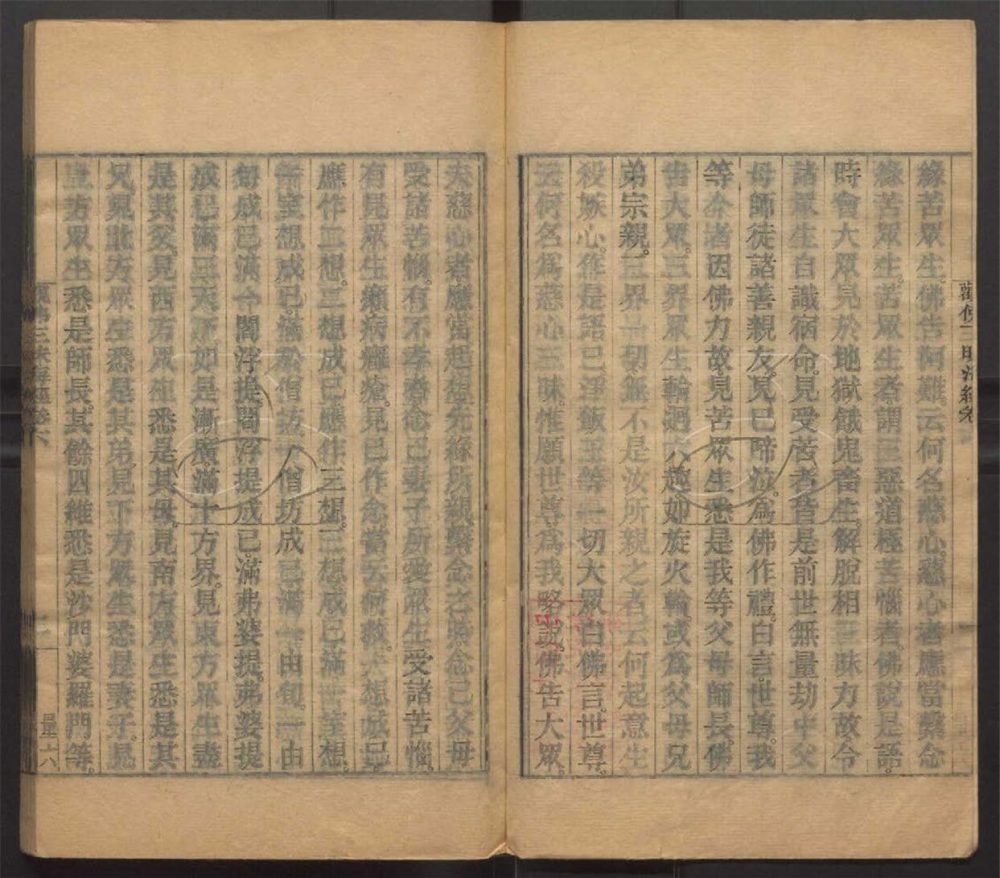 緣苦眾生。佛告阿難云何名慈心。慈心者應當繫念
緣苦眾生。苦眾生者謂三惡道極苦惱者。佛說是語。
時會大眾見於地獄餓鬼畜生。解脫相三昧力故令
諸眾生自識宿命。見受苦者皆是前世無量劫中父
母師徒諸善親友。見已啼泣。為佛作禮。白言世尊。我
等今者因佛力故。見苦眾生悉是我等父母師長。佛
告大眾。三界眾生輪迴六趣如旋火輪。或為父母兄
弟宗親。三界一切無不是汝所親之者。云何起意生
殺嫉心。作是語已。淨飯王等一切大眾白佛言。世尊。
云何名為慈心三昧。惟願世尊為我略說。佛告大眾。
夫慈心者。應當起想先緣所親。繫念之時念已父母
受諸苦惱。有不孝者念已妻子所愛眾生受諸苦惱。
有見眾生癩病癰瘡。見已作念當云何救。一想成已
應作二想。二想成已應作三想。三想成已滿一室想。
一室想成已滿於僧坊。一僧坊成已滿一由旬。一由
旬成已滿一閻浮提。閻浮提成已。滿弗婆提。弗婆提
成已滿三天下。如是漸廣。滿十方界。見東方眾生盡
是其父。見西方眾生悉是其母。見南方眾生悉是其
兄。見北方眾生悉是其弟。見下方眾生悉是妻子。見
上方眾生悉是師長。其餘四維悉是沙門婆羅門等。